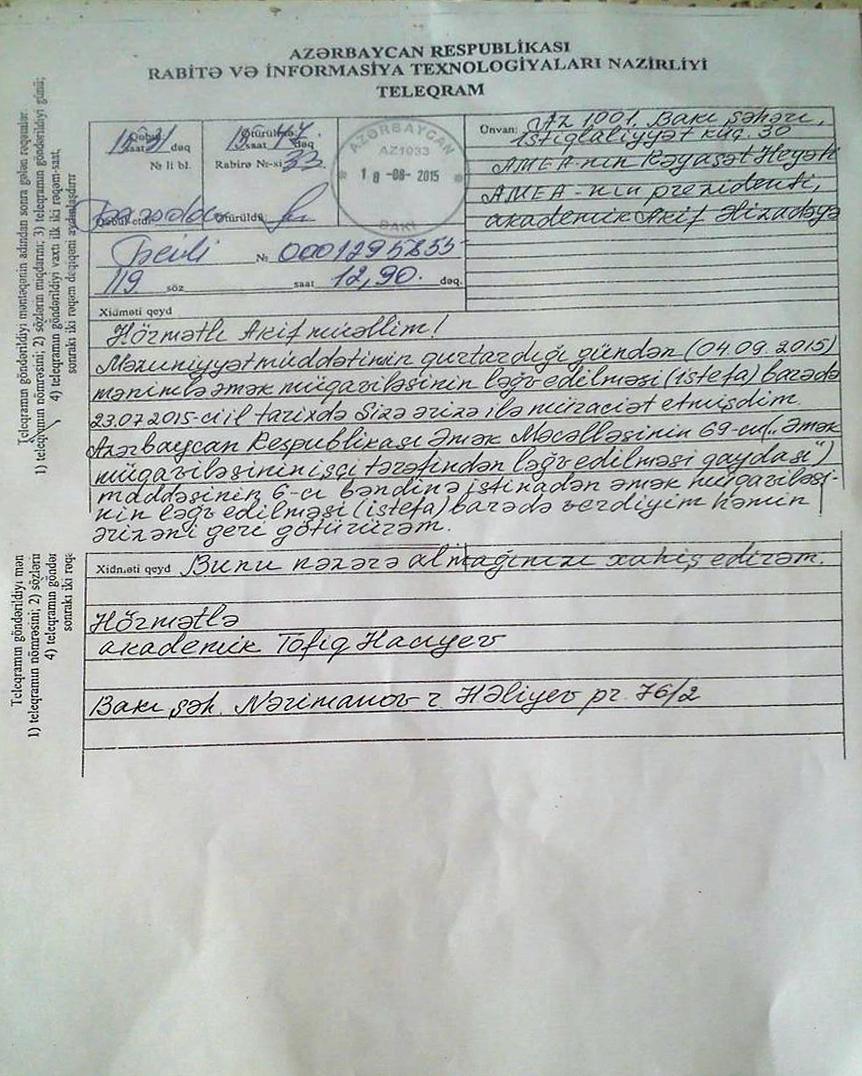 AZƏRBAYCAN RESPUBLİKASI
RABİTƏ VƏ İNFORMASİYA TEXNOLOGİYALARI NAZİRLİYİ
TELEQRAM
saat dəq
№ li bl.
saat dəq
Rabirə №-si 33
Ötürüldü
AZƏRBAYCAN
AZ1033
18-08-2015
BAKI
Ünvan: AZ 1001, Bakı şəhəri,
İstiqlaliyyət küç. 30
AMEA-nın Rəyasət Heyəti
AMEA-nın prezidenti,
akademik Akif Əlizadəyə
№ 0001295855
119 söz saat 12,90. dəq.
Xidməti qeyd
Hörmətli Akif müəllim!
Məzuniyyət müddətimin qurtardığı gündən (04.09.2015)
mənimlə əmək müqaviləsinin ləğv edilməsi (istefa) barədə
23.07.2015-ci il tarixdə Sizə ərizə ilə müraciət etmişdim.
Azərbaycan Respublikası Əmək Məcəlləsinin 69-cu („Əmək
müqaviləsinin işçi tərəfindən ləğv edilməsi qaydası")
maddəsinin 6-cı bəndinə istinadən əmək müqaviləsi-
nin ləğv edilməsi (istefa) barədə verdiyim həmin
ərizəni geri götürürəm.
Xidməti qeyd Bunu nəzərə almağınızı xahiş edirəm.
Hörmətlə
akademik Tofiq Hacıyev
Bakı şəh. Nərimanov r. H.Əliyev pr. 76/2
Teleqramın göndərildiyi məntəqənin adından sonra gələn rəqəmlər:
1) teleqramın nömrəsini; 2) sözlərin miqdarını; 3) teleqramın göndərildiyi günü;
4) teleqramın göndərildiyi vaxtı ilk iki rəqəm-saat,
sonrakı iki rəqəm dəqiqəni aydınlaşdırır
Teleqramın göndərildiyi mən
1) teleqramın nömrəsini; 2) sözlərin
4) teleqramın göndər
sonrakı iki rəqə